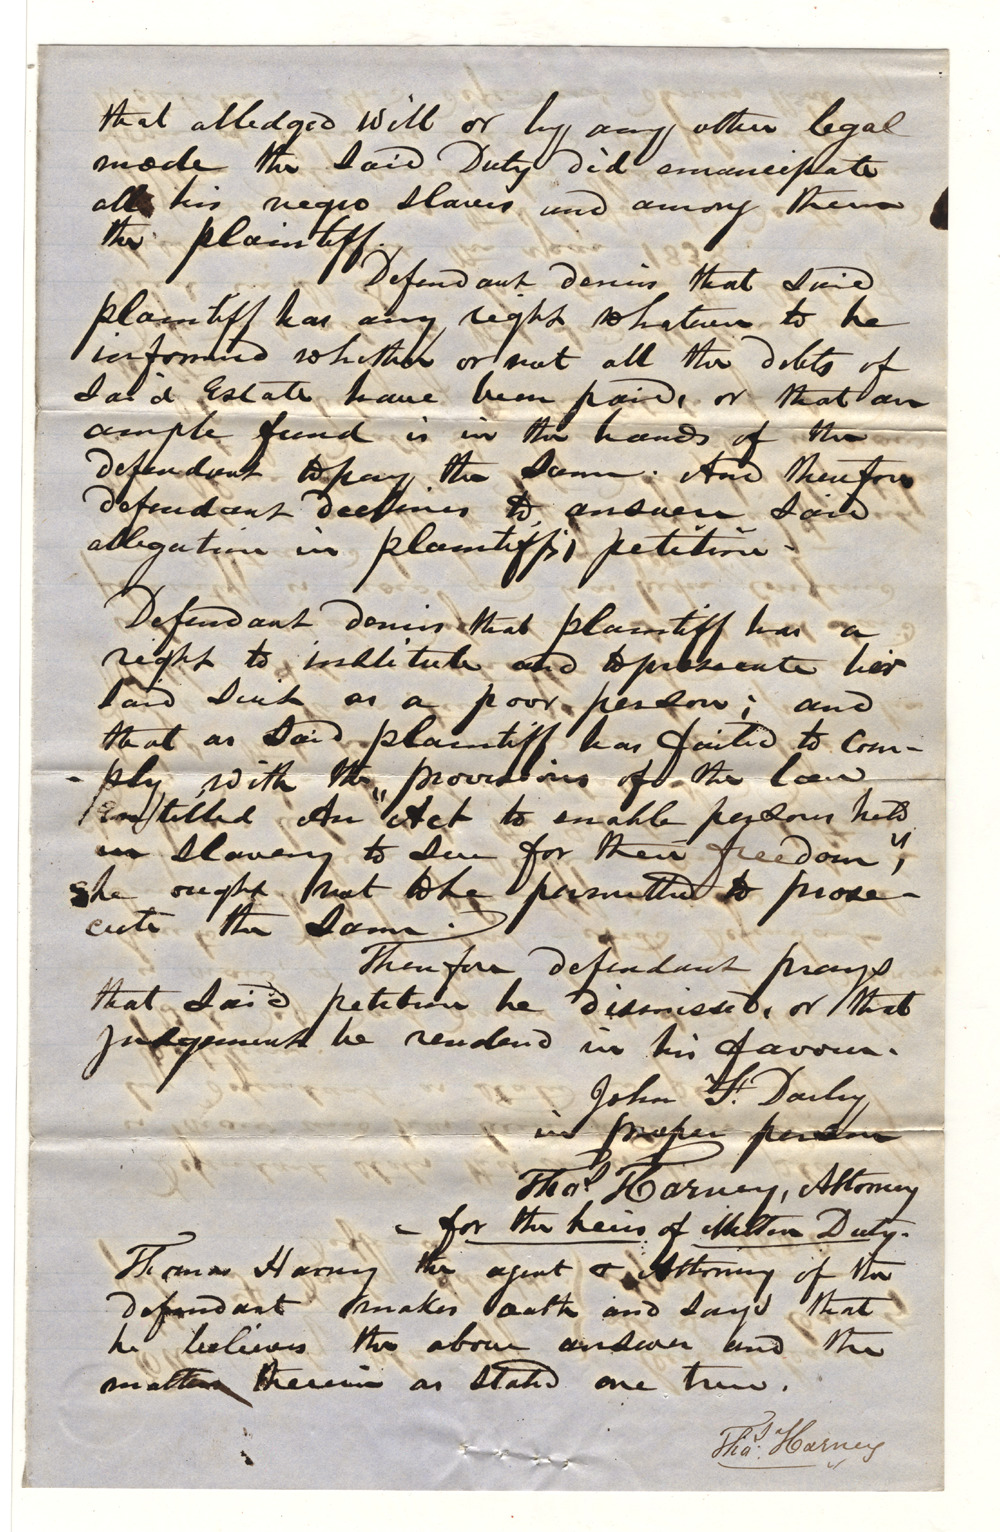 that alledged Will or by any other legal
mode the Said Duty did emancipate
all his negro slaves and among them
the plaintiff.
Defendant denies that Said
plaintiff has any right whatever to be
informed whether or not all the debts of
Said Estate have been paid, or that an
ample fund is in the hands of the
defendant to pay the Same. And therefore
defendant declines to answer Said
allegation in plaintiff's petition -
Defendant denies that plaintiff has a
right to institute and to prosecute her
Said Suit as a poor person; and
that as Said plaintiff has failed to com-
ply with the provisions of the law
entitled "An Act to enable persons held
in slavery to Sue for their freedom",
She ought not to be permitted to prose-
cute the Same.
Therefore defendant prays
that Said petition be dismissed, or that
Judgement be rendered in his favour.
John F. Darby
in proper person
Thos. Harney, Attorney
- for the heirs of Milton Duty.
Thomas Harney the agent & Attorney of the
defendant makes oath and Says that
he believes the above answer and the
matters therein as stated are true.
Thos. Harney